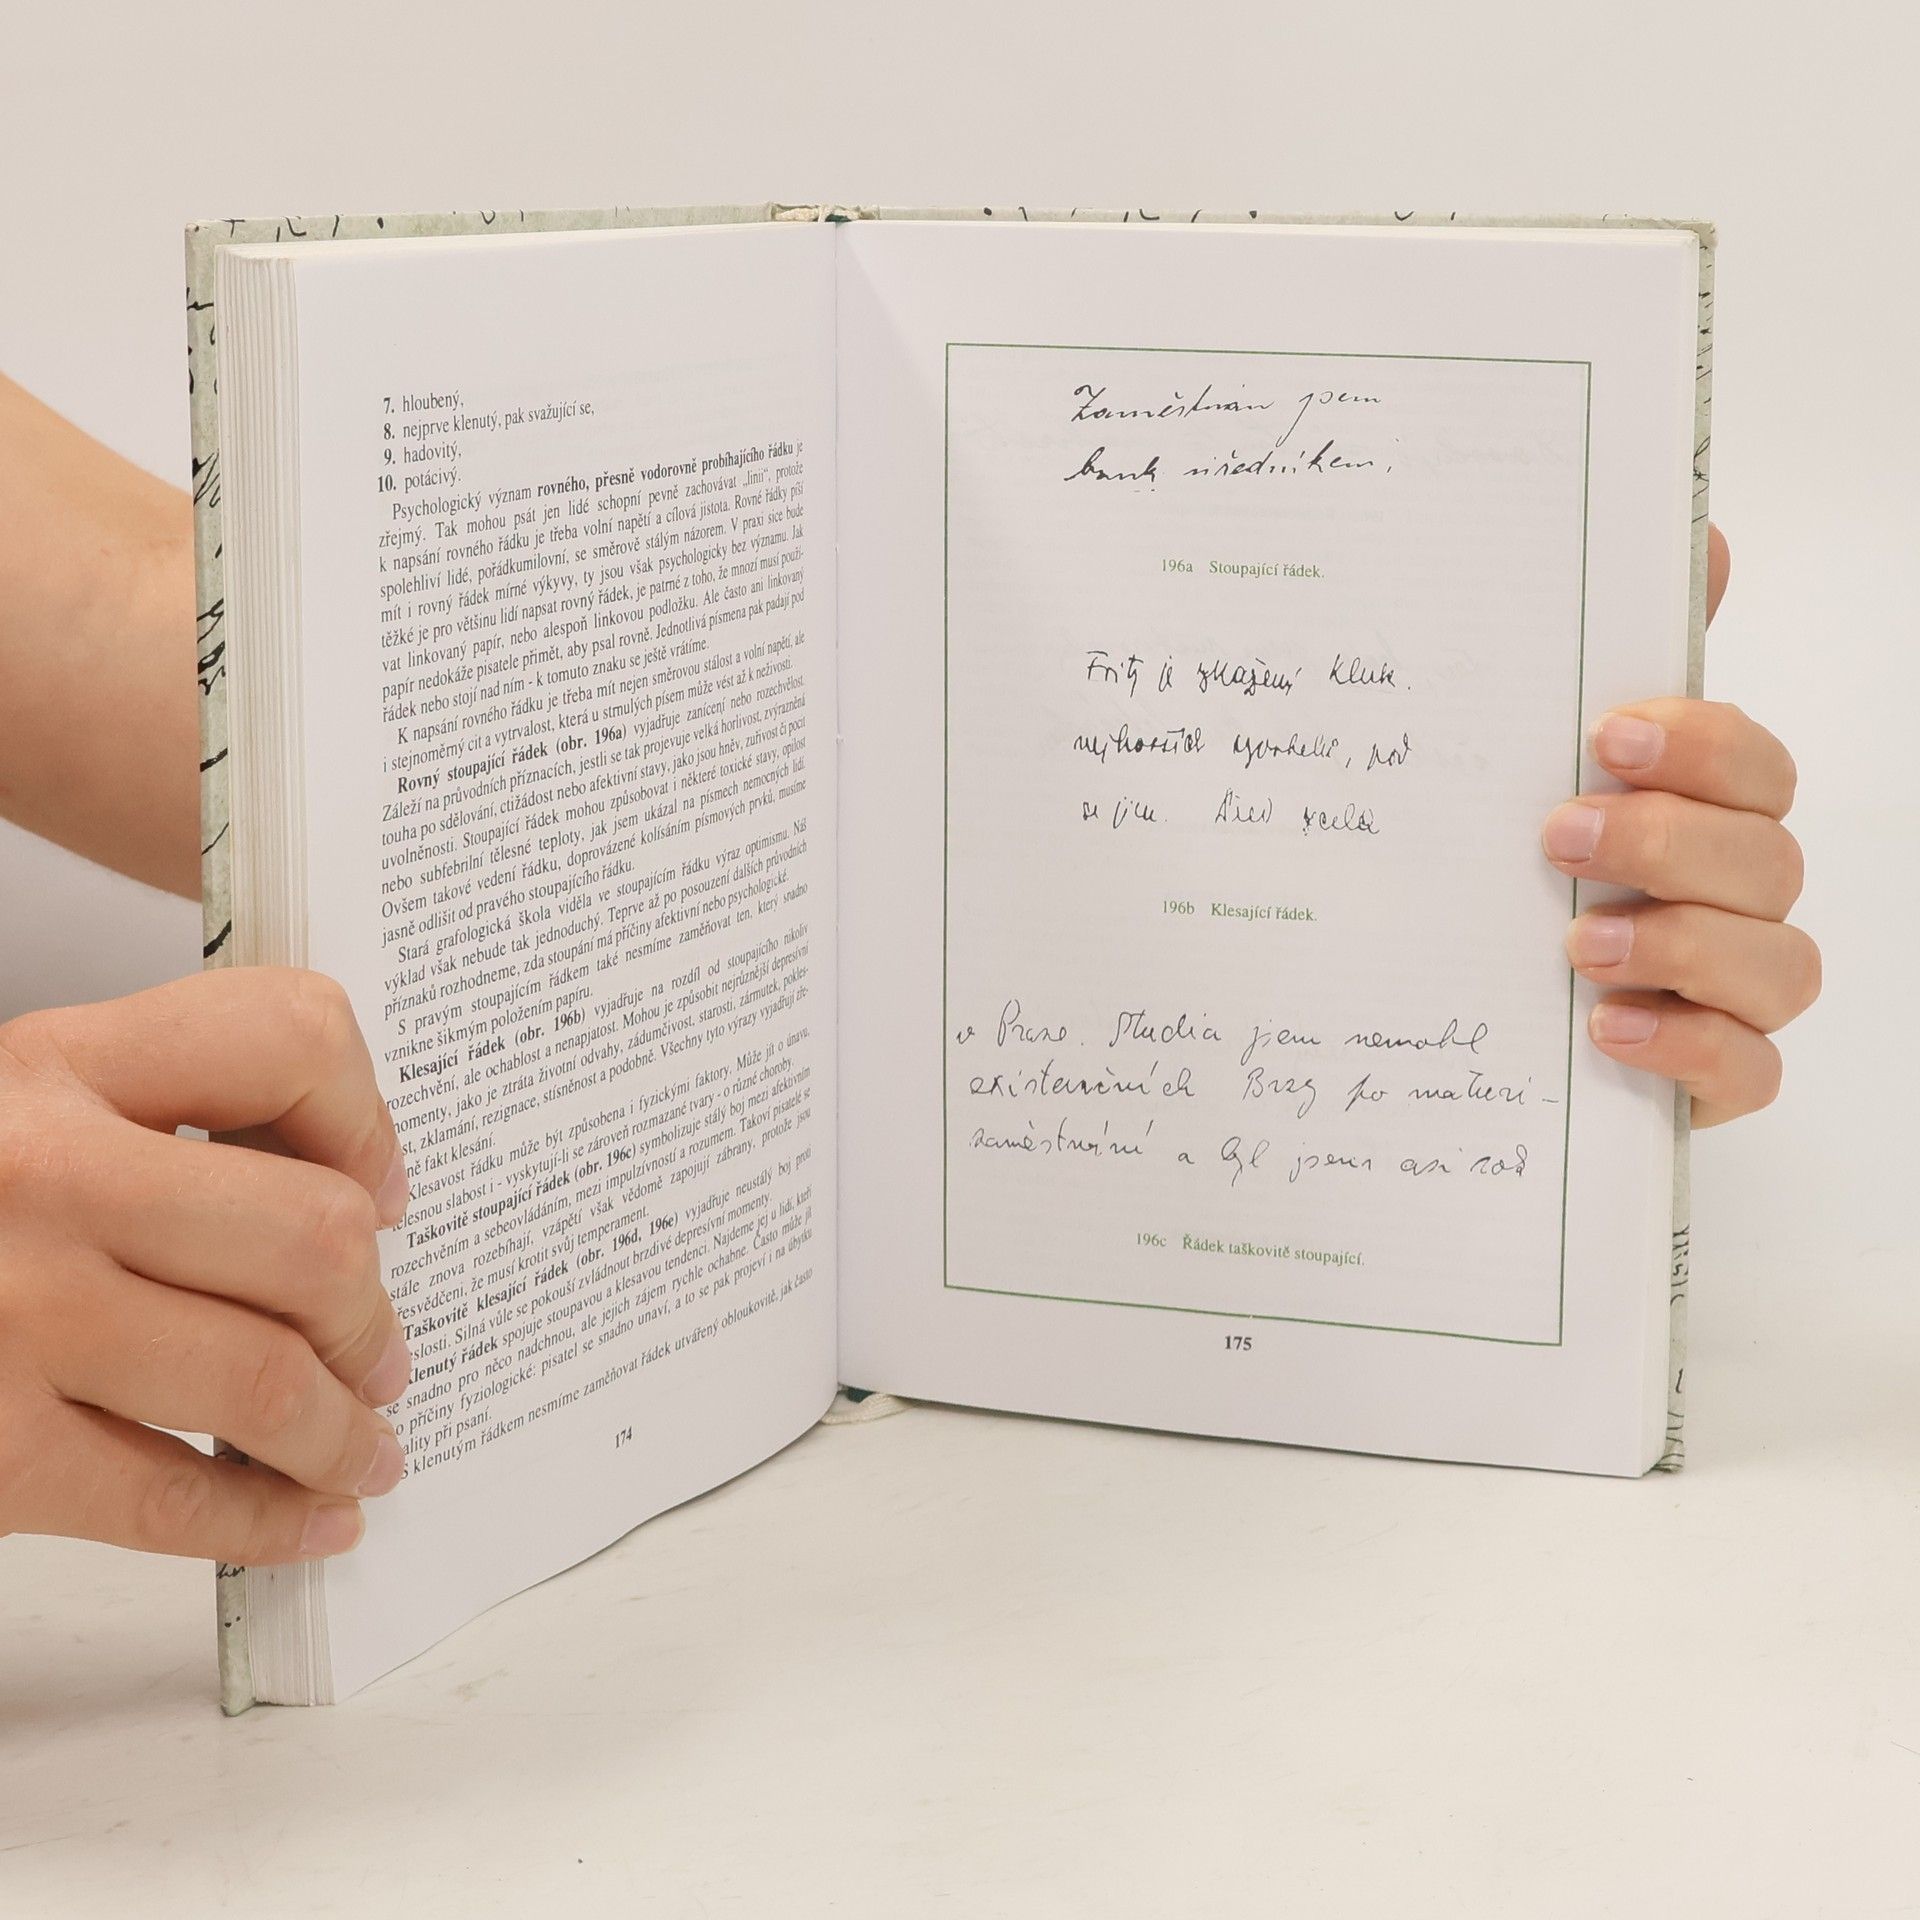 7. hloubený,
8. nejprve klenutý, pak svažující se,
9. hadovitý,
10. potácivý.
Psychologický význam rovného, přesně vodorovně probíhajícího řádku je
zřejmý. Tak mohou psát jen lidé schopní pevně zachovávat „linii“, protože
k napsání rovného řádku je třeba volní napětí a cílová jistota. Rovné řádky píší
spolehliví lidé, pořádkumilovní, se směrově stálým názorem. V praxi sice bude
mít i rovný řádek mírné výkyvy, ty jsou však psychologicky bez významu. Jak
těžké je pro většinu lidí napsat rovný řádek, je patrné z toho, že mnozí musí použí-
vat linkovaný papír, nebo alespoň linkovou podložku. Ale často ani linkovaný
papír nedokáže pisatele přimět, aby psal rovně. Jednotlivá písmena pak padají pod
řádek nebo stojí nad ním - k tomuto znaku se ještě vrátíme.
K napsání rovného řádku je třeba mít nejen směrovou stálost a volní napětí, ale
i stejnoměrný cit a vytrvalost, která u strnulých písem může vést až k neživosti.
Rovný stoupající řádek (obr. 196a) vyjadřuje zanícení nebo rozechvělost.
Záleží na průvodních příznacích, jestli se tak projevuje velká horlivost, zvýrazněná
touha po sdělování, ctižádost nebo afektivní stavy, jako jsou hněv, zuřivost či pocit
uvolněnosti. Stoupající řádek mohou způsobovat i některé toxické stavy, opilost
nebo subfebrilní tělesné teploty, jak jsem ukázal na písmech nemocných lidí.
Ovšem takové vedení řádku, doprovázené kolísáním písmových prvků, musíme
jasně odlišit od pravého stoupajícího řádku.
Stará grafologická škola viděla ve stoupajícím řádku výraz optimismu. Náš
výklad však nebude tak jednoduchý. Teprve až po posouzení dalších průvodních
příznaků rozhodneme, zda stoupání má příčiny afektivní nebo psychologické.
S pravým stoupajícím řádkem také nesmíme zaměňovat ten, který snadno
vznikne šikmým položením papíru.
Klesající řádek (obr. 196b) vyjadřuje na rozdíl od stoupajícího nikoliv
rozechvění, ale ochablost a nenapjatost. Mohou je způsobit nejrůznější depresivní
momenty, jako je ztráta životní odvahy, zádumčivost, starosti, zármutek, pokles-
st, zklamání, rezignace, stísněnost a podobně. Všechny tyto výrazy vyjadřují zře-
ně fakt klesání.
Klesavost řádku může být způsobena i fyzickými faktory. Může jít o únavu,
elesnou slabost i - vyskytují-li se zároveň rozmazané tvary - o různé choroby.
Taškovitě stoupající řádek (obr. 196c) symbolizuje stálý boj mezi afektivním
rozechvěním a sebeovládáním, mezi impulzívností a rozumem. Takoví pisatelé se
stále znova rozebíhají, vzápětí však vědomě zapojují zábrany, protože jsou
řesvědčeni, že musí krotit svůj temperament.
Taškovitě klesající řádek (obr. 196d, 196e) vyjadřuje neustálý boj proti
eslosti. Silná vůle se pokouší zvládnout brzdivé depresívní momenty.
Klenutý řádek spojuje stoupavou a klesavou tendenci. Najdeme jej u lidí, kteří
se snadno pro něco nadchnou, ale jejich zájem rychle ochabne. Často může jít
o příčiny fyziologické: pisatel se snadno unaví, a to se pak projeví i na úbytku
ality při psaní.
S klenutým řádkem nesmíme zaměňovat řádek utvářený obloukovitě, jak často
174
Zaměstnán jsem
bank. úředníkem,
196a Stoupající řádek.
Fritz je zkažený kluk.
nejhorších vyvrhelů, pod
se jim. Šied zcela
196b Klesající řádek.
v Praze. Studia jsem nemohl
existenčních Brzy po maturi-
zaměstnání a byl jsem asi rok
196c Řádek taškovitě stoupající.
175